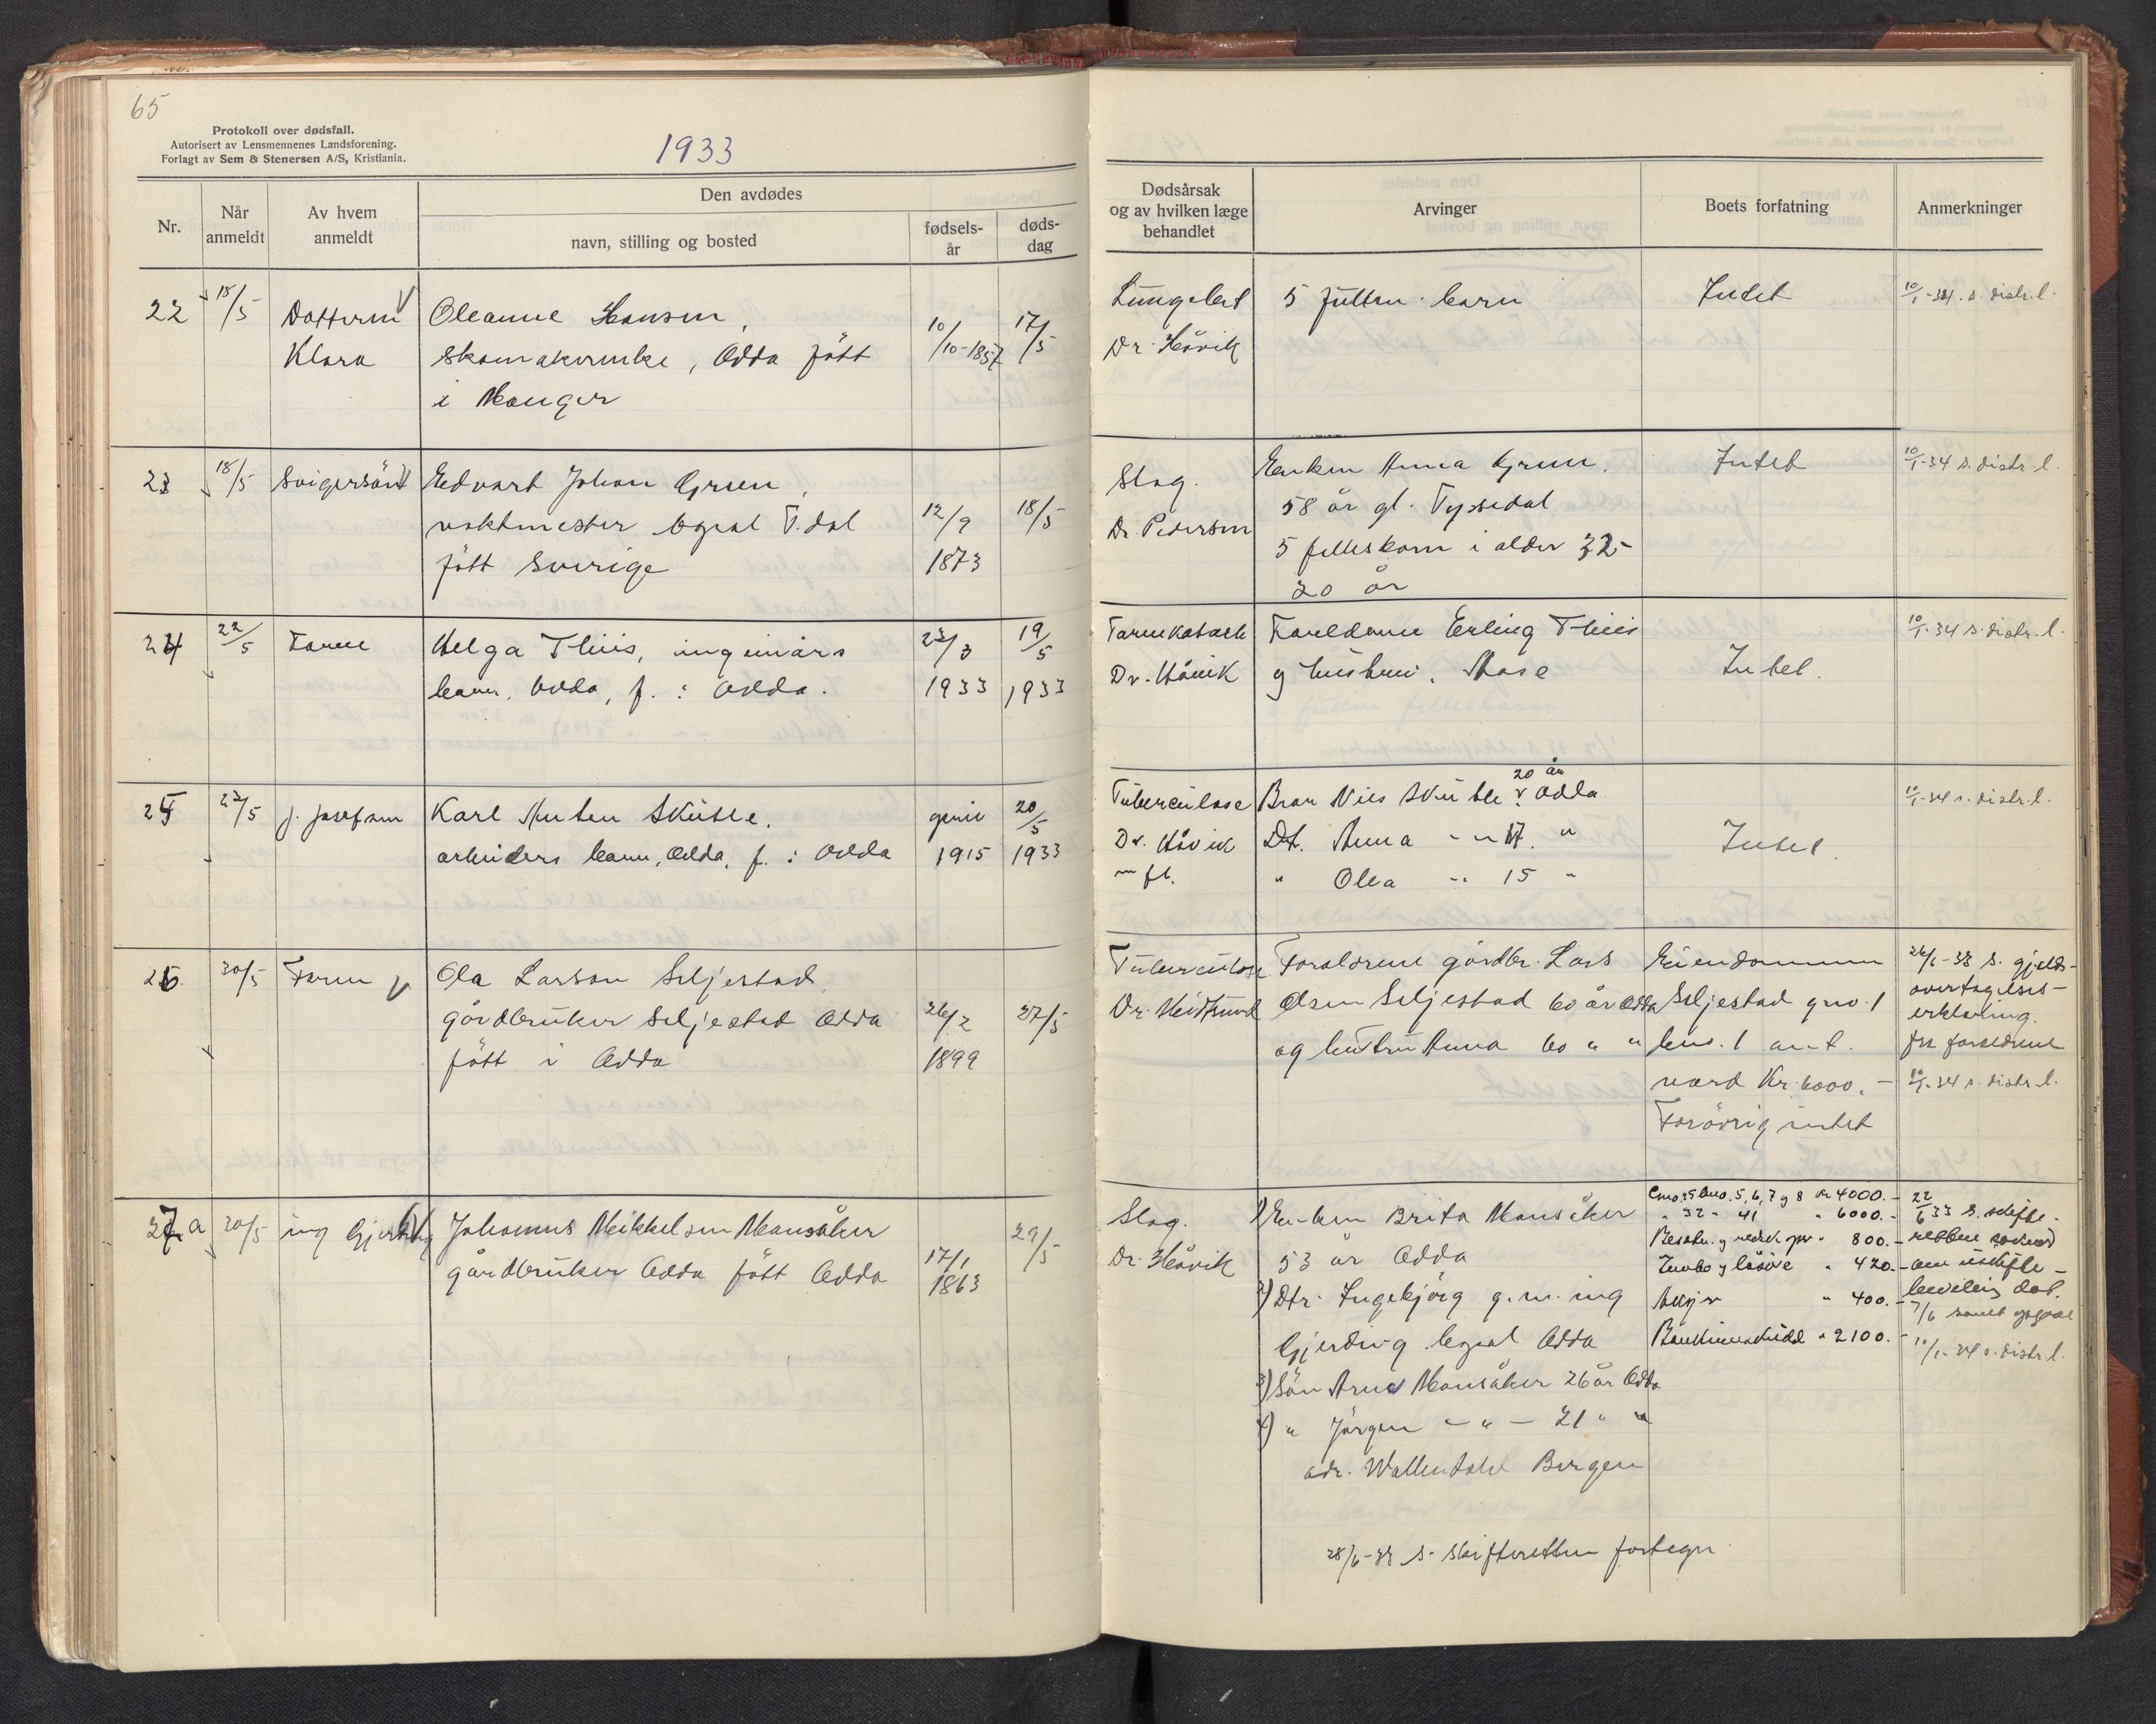 65
Protokoll over dødsfall.
Autorisert av Lensmennenes Landsforening.
Forlagt av Sem & Stenersen A/S, Kristiania.
1933
Nr.
Når anmeldt
Av hvem anmeldt
Den avdødes
navn, stilling og bosted
fødsels-år
døds-dag
Dødsårsak og av hvilken læge behandlet
Arvinger
Boets forfatning
Anmerkninger
22 18/5 Datteren Oleanne Hansen,
Klara skomakerenke, Odda født 10/10-1857 17/5
i Manger
Lungebet 5 fullm. barn Intet 10/1-34. s. distr. l.
Dr. Håvik
23 18/5 Svigersön Edvart Johan Gruen,
vaktmester bopal T.dal 12/9 18/5
fött Sverige 1873
Slag. Enken Anna Gruen, Intet 10/1-34 s. distr. l.
Dr. Pedersen 58 år gl. Tyssedal
5 felles barn i alder 32-
20 år
24 22/5 Faren Helga Thiis, ingeniörs 23/3 19/5
barn, Odda, f. i Odda. 1933 1933
Tarmkatarh Foreldrene Erling Thiis 10/1-34 s. distr. l.
Dr. Håvik g hustru, Aase Intet.
25 22/5 J. Josefsen Karl Anton Skutle, 20/5
arbeiders barn, Odda, f. i Odda 1915 1933
20 år
Tuberculose Bror Nils Skutle Odda 10/1-34 s. distr. l.
Dr. Håvik Dt. Anna - " 17. " Intet.
m fl. " Olea - " 15 "
26. 30/5 Faren Ola Larson Seljestad
gårdbruker Seljestad Odda 26/2 27/5
fött i Odda 1899
Tuberculose Foreldrene gårdbr. Lars Eiendommen 26/6-33 s. gjelds-
Olsen Seljestad 60 år Odda Seljestad gno. 1 overtagelses-
og hustru Anna 60 " " bno. 1 ant. erklæring.
verd Kr. 6000.- fra foreldrene
10/1-34 s. distr. l.
Forövrig intet
27 a 30/5 ing Gjerding Johannes Mikkelsen Mansåker 29/5
gårdbruker Odda fött Odda 17/1
1863
Slag. 1) Enken Brita Mansåker
Dr. Håvik 53 år Odda
2) Dtr. Ingebjörg g. m. ing
Gjerding bopal Odda
3) Sön Arne Mansåker 26 år Odda
4) " Jörgen - " - 21 " "
adr. Wallendahl Bergen
Gno. 25 bno. 5, 6, 7 g 8 Kr 4000.-
" 32 " 41 " 6000.-
Besetn. g redsk " 800.-
Innbo g lösöre " 420.-
Aksjer " 400.-
Bankinnskudd " 2100.-
22/6 33 s. skifte-
retten
om uskifte-
bevilling dat.
7/6
10/1-34 s. distr. l.
28/6-33 s. skifteretten fortegn